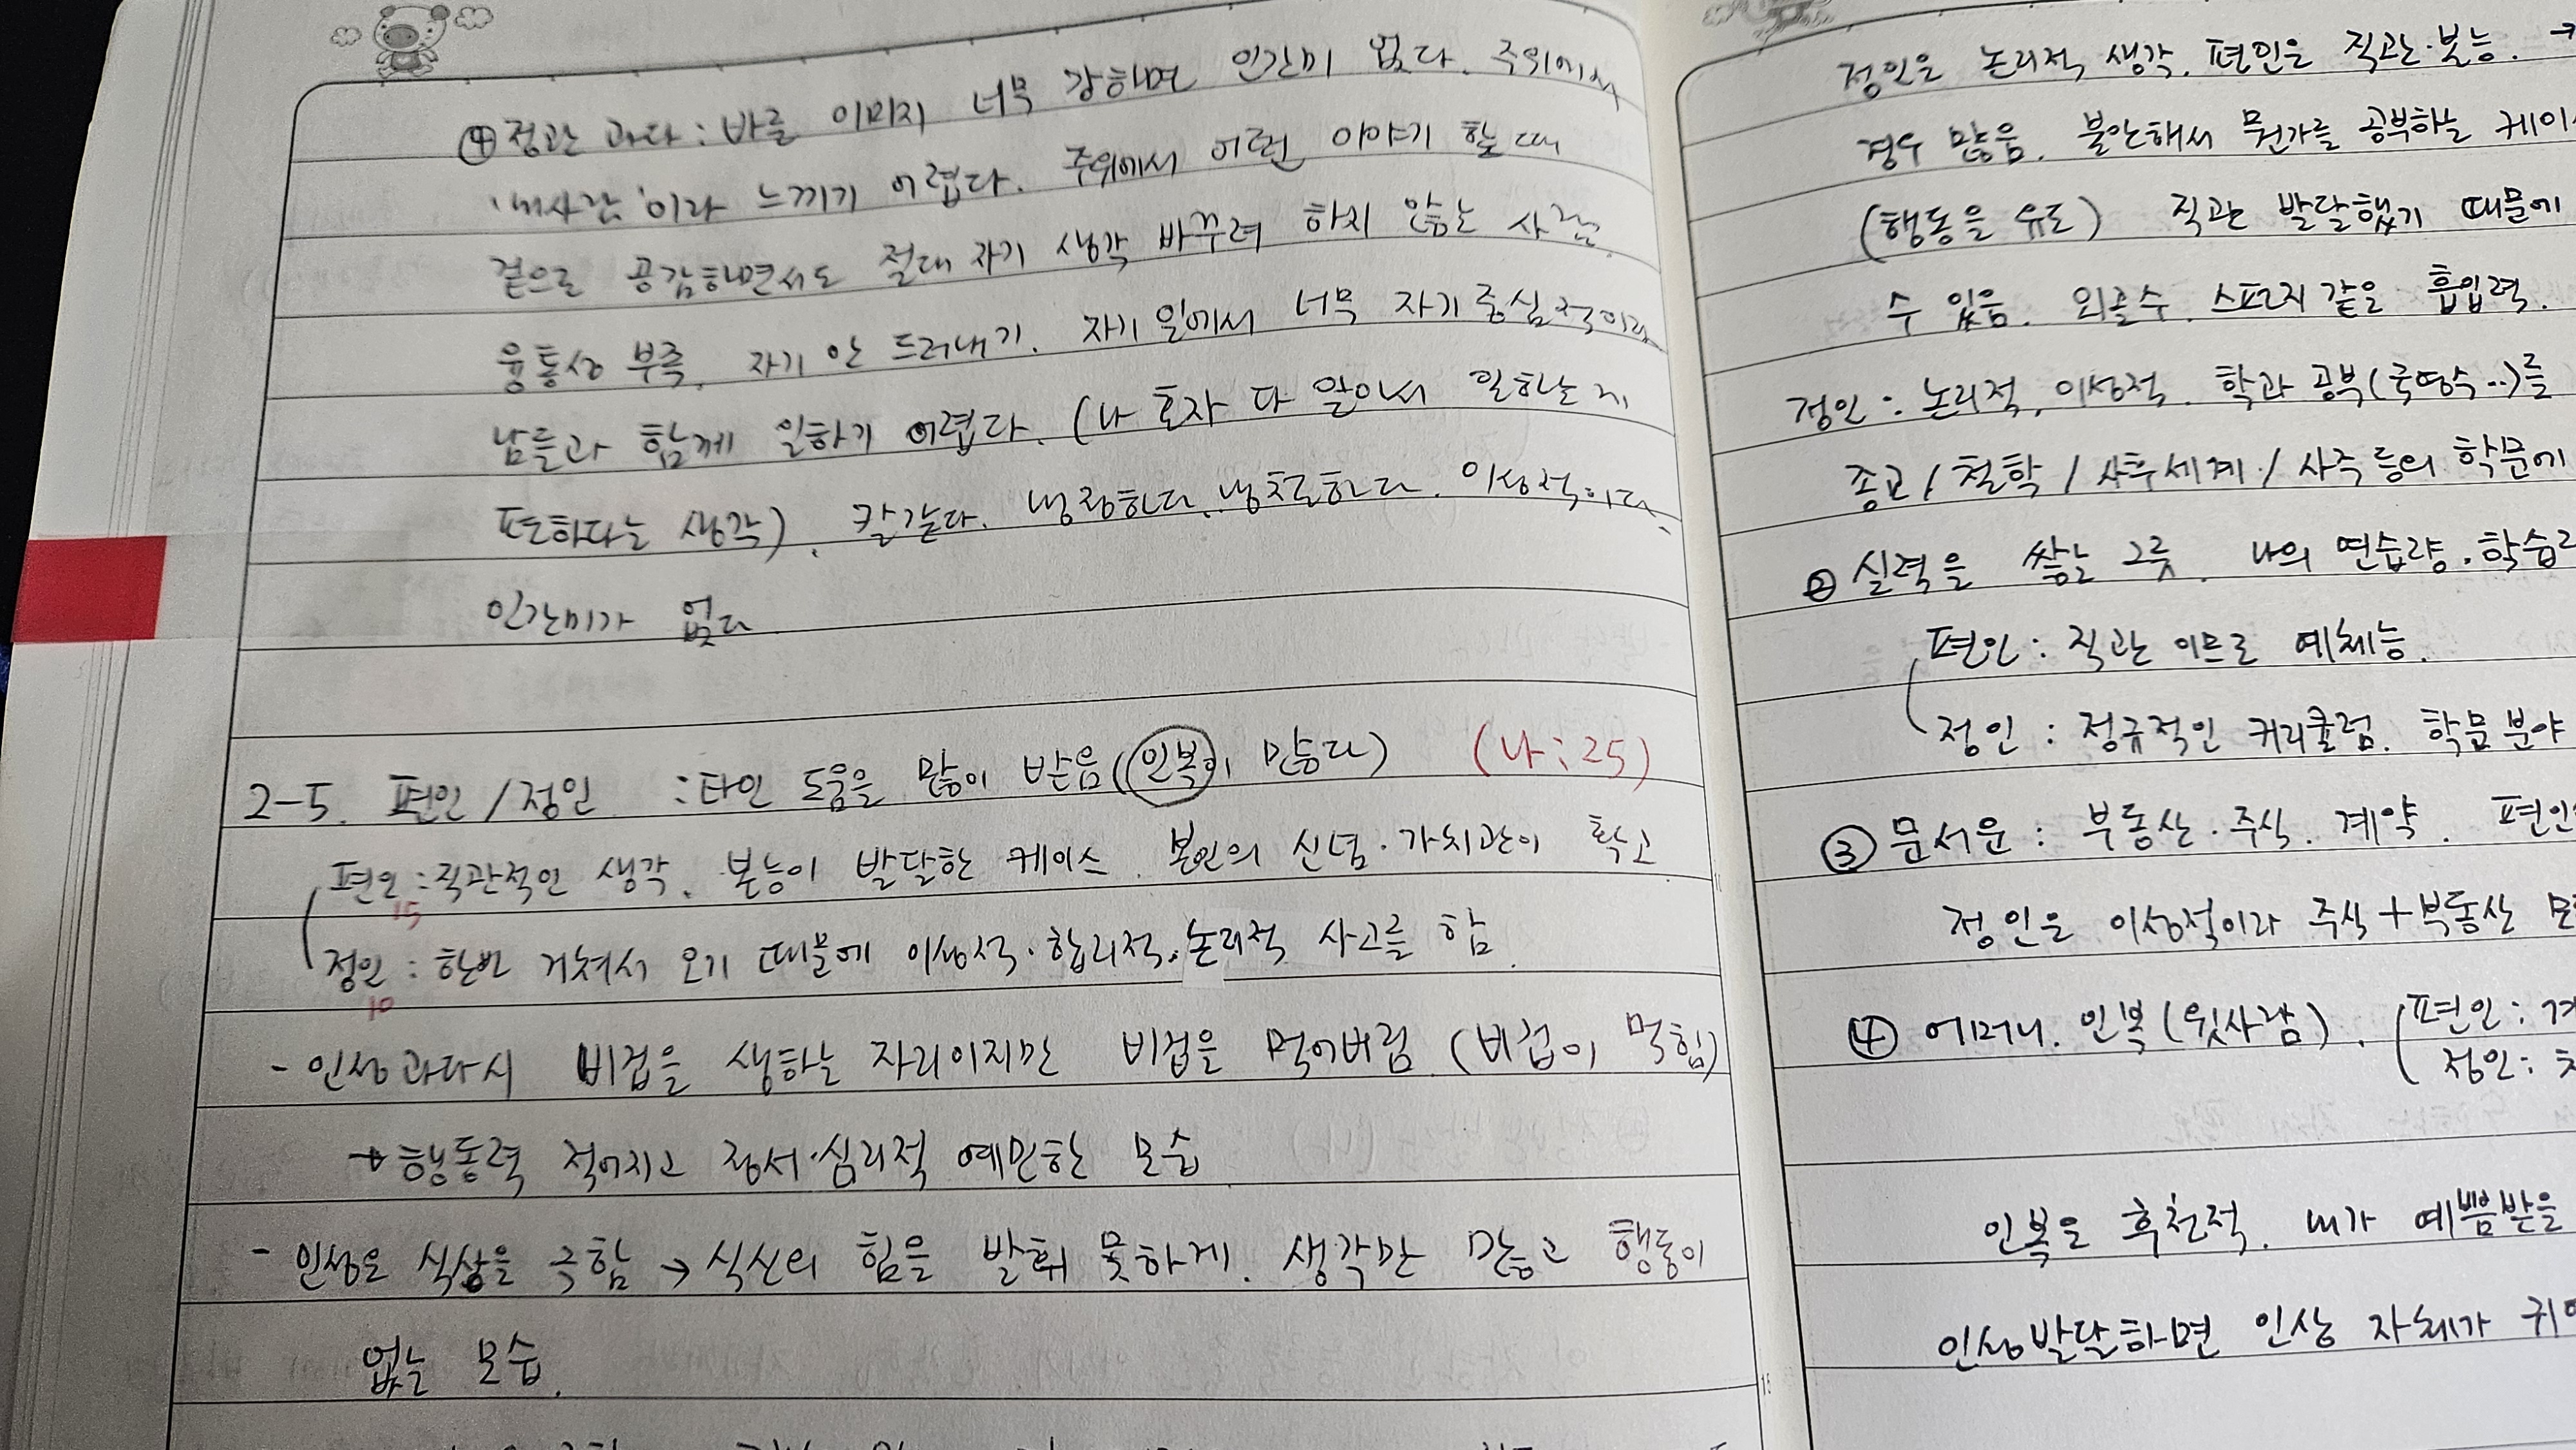 ④ 정관 과다 : 바른 이미지 너무 강하면 인간미 없다. 주위에서
'내사람'이라 느끼기 어렵다. 주위에서 어떤 이야기 할 때
겉으로 공감하면서도 절대 자기 생각 바꾸려 하지 않는 사람.
융통성 부족. 자기 안 드러내기. 자기 일에서 너무 자기중심적이라
남들과 함께 일하기 어렵다. (나 혼자 다 알아서 일하는게
편하다는 생각). 칼같다. 냉정하다. 냉철하다. 이성적이다.
인간미가 없다
2-5. 편인/정인 : 타인 도움을 많이 받음 (인복이 많다) (나:25)
편인 : 직관적인 생각. 본능이 발달한 케이스. 본인의 신념·가치관이 확고
15
정인 : 한번 거쳐서 오기 때문에 이성적·합리적·논리적 사고를 함.
10
- 인성과다시 비겁을 생하는 자리이지만 비겁을 먹어버림 (비겁이 먹힘)
→ 행동력 적어지고 정서·심리적 예민한 모습
- 인성은 식상을 극함 → 식신의 힘을 발휘 못하게. 생각만 많고 행동이
없는 모습.
정인은 논리적 생각. 편인은 직관·본능. →
경우 많음. 불안해서 뭔가를 공부하는 케이
(행동을 유도) 직관 발달했기 때문에
수 있음. 외골수. 스펀지 같은 흡입력.
정인 : 논리적, 이성적. 학과 공부(국영수..)를
종교/철학/사후세계/사주 등의 학문에
② 실력을 쌓는 그릇. 나의 연습량·학습
편인 : 직관 이므로 예체능.
정인 : 정규적인 커리큘럼. 학문분야
③ 문서운 : 부동산·주식. 계약. 편인
정인은 이성적이라 주식+부동산
④ 어머니. 인복(윗사람). 편인 :
정인 :
인복은 후천적. 내가 예쁨받을
인성발달하면 인상 자체가